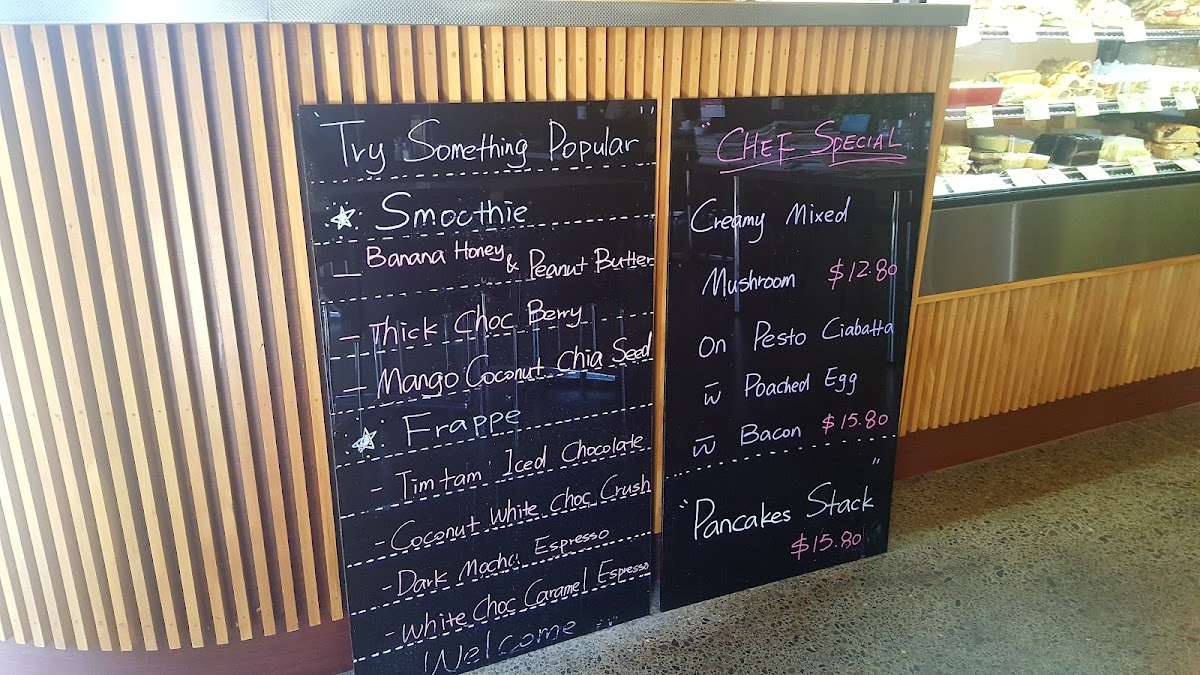 "Try Something Popular"
Smoothie
- Banana Honey & Peanut Butter
- Thick Choc Berry
- Mango Coconut Chia Seed
Frappe
- Timtam Iced Chocolate
- Coconut White Choc Crush
- Dark Mocha Espresso
- White Choc Caramel Espresso
Welcome
"CHEF SPECIAL"
Creamy Mixed
Mushroom $12.80
On Pesto Ciabatta
w̅ Poached Egg
w̅ Bacon $15.80
"Pancakes Stack"
$15.80